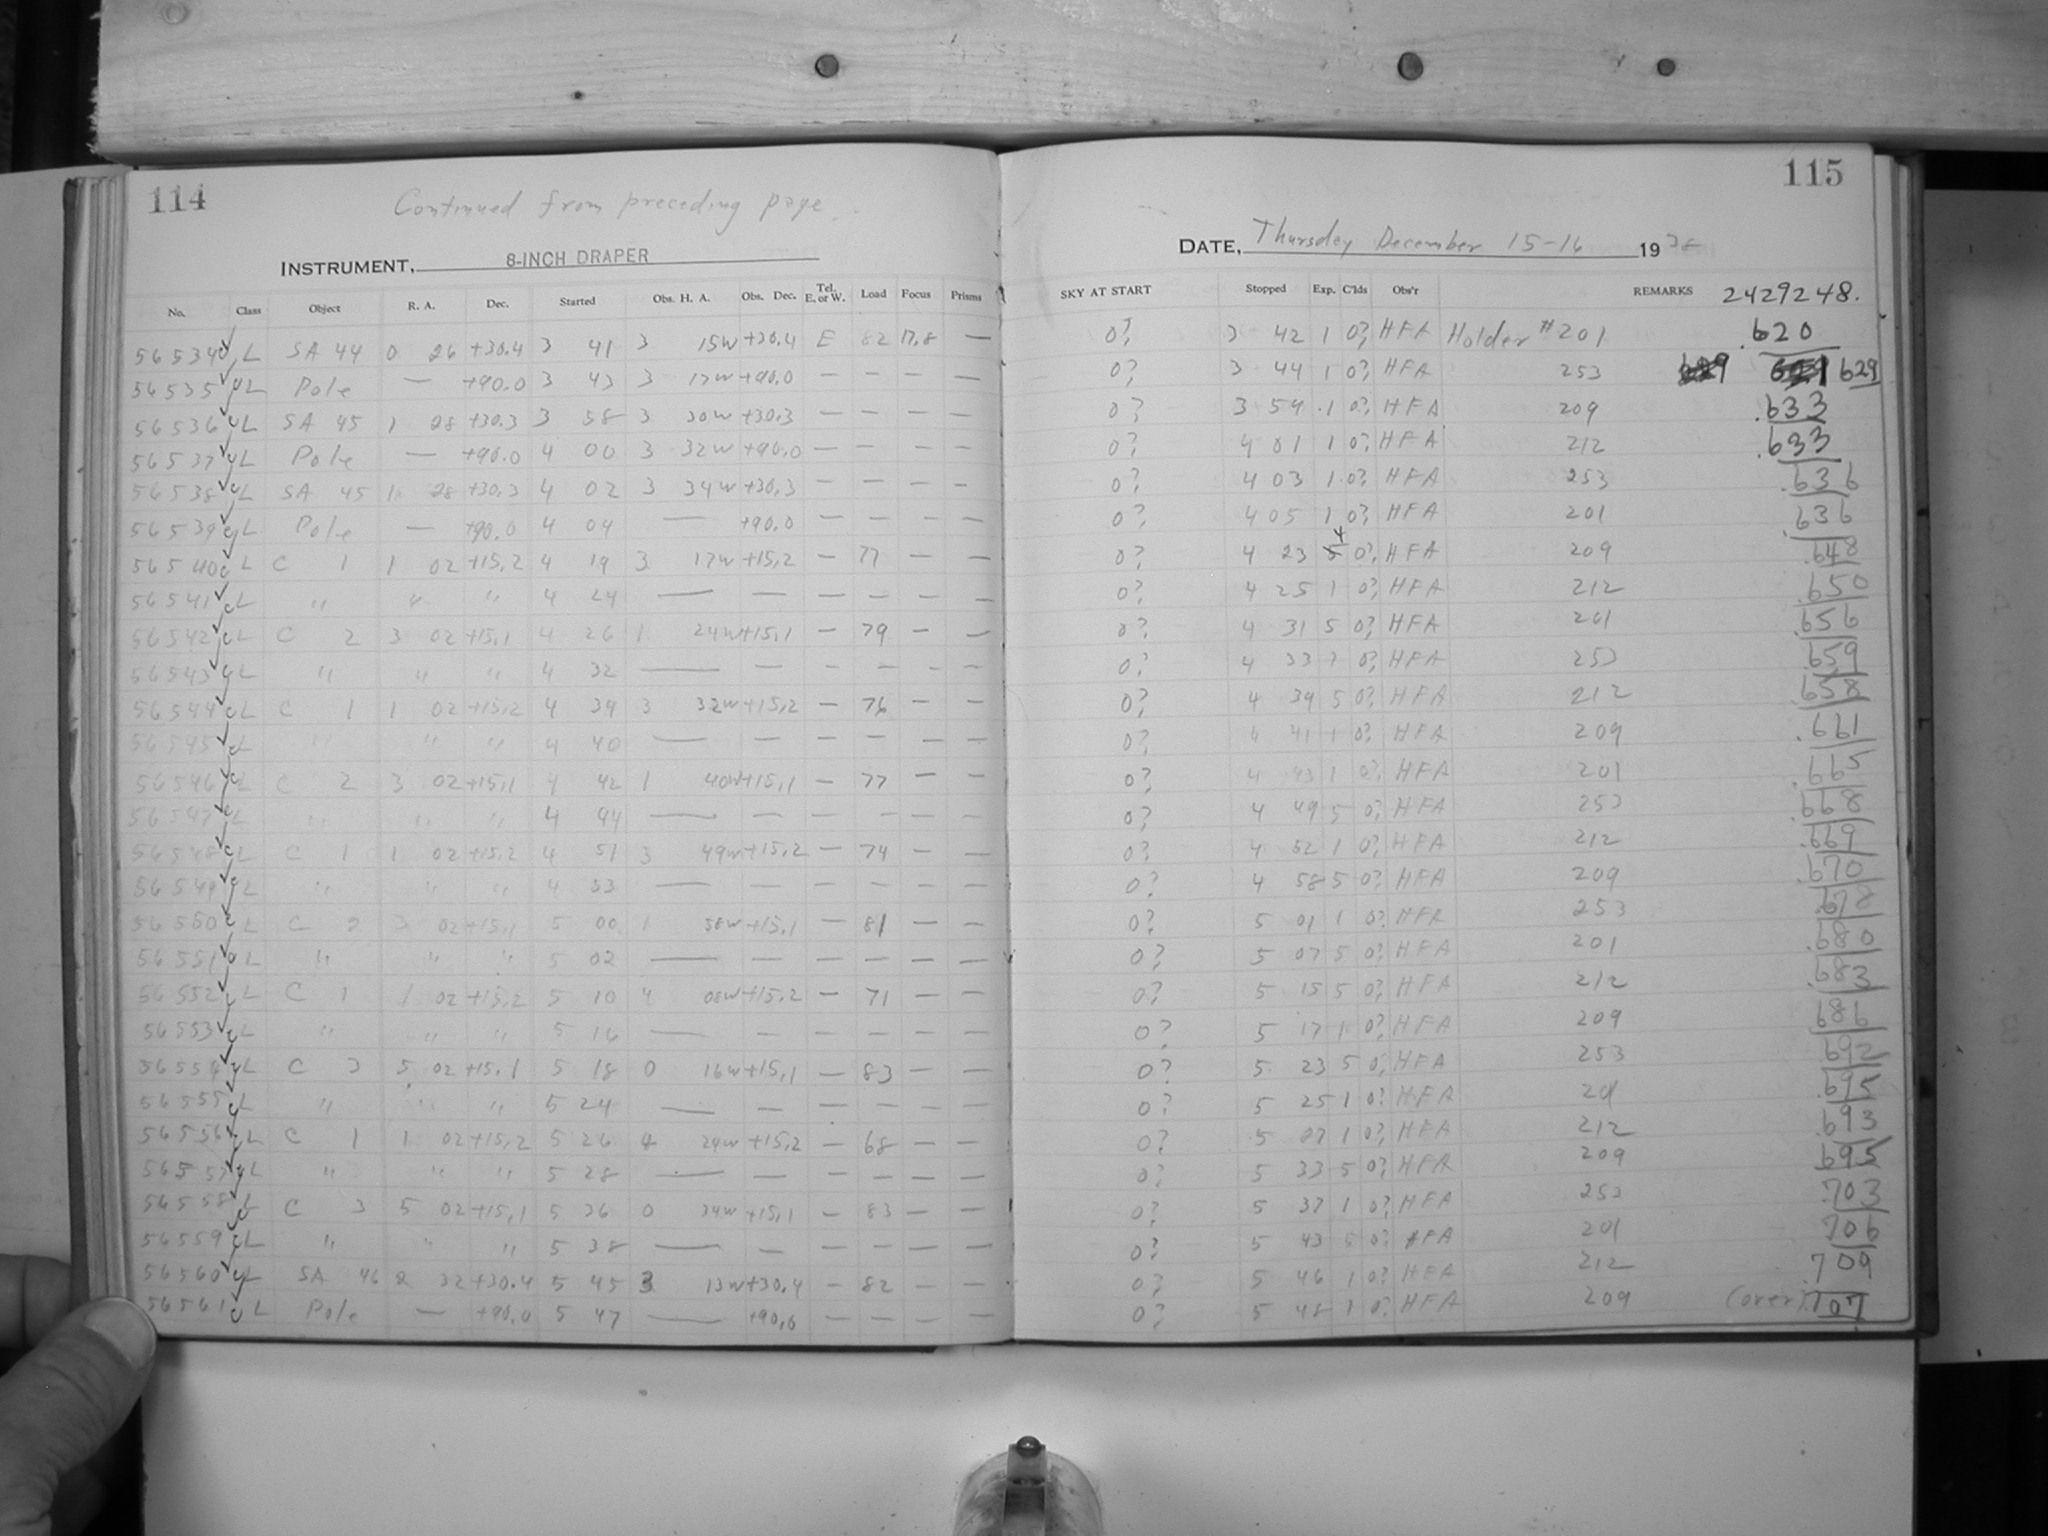 114
Continued from preceding page.
INSTRUMENT, 8-INCH DRAPER
No. Class Object R. A. Dec. Started Obs. H. A. Obs. Dec. Tel. E. or W. Load Focus Prisms
56534 L SA 44 0 26 +30.4 3 41 3 15w +30.4 E 82 17.8 —
56535 L Pole — +90.0 3 43 3 17w +90.0 — — — —
56536 L SA 45 1 28 +30.3 3 58 3 30w +30.3 — — — —
56537 L Pole — +90.0 4 00 3 32w +90.0 — — — —
56538 L SA 45 1 28 +30.3 4 02 3 34w +30.3 — — — —
56539 L Pole — +90.0 4 04 — +90.0 — — — —
56540 L C 1 1 02 +15.2 4 19 3 17w +15.2 — 77 — —
56541 L " " " 4 24 — — — — — —
56542 L C 2 3 02 +15.1 4 26 1 24w +15.1 — 79 — —
56543 L " " " 4 32 — — — — — —
56544 L C 1 1 02 +15.2 4 34 3 32w +15.2 — 76 — —
56545 L " " " 4 40 — — — — — —
56546 L C 2 3 02 +15.1 4 42 1 40w +15.1 — 77 — —
56547 L " " " 4 44 — — — — — —
56548 L C 1 1 02 +15.2 4 51 3 49w +15.2 — 74 — —
56549 L " " " 4 53 — — — — — —
56550 L C 2 3 02 +15.1 5 00 1 58w +15.1 — 81 — —
56551 L " " " 5 02 — — — — — —
56552 L C 1 1 02 +15.2 5 10 4 08w +15.2 — 71 — —
56553 L " " " 5 16 — — — — — —
56554 L C 3 5 02 +15.1 5 18 0 16w +15.1 — 83 — —
56555 L " " " 5 24 — — — — — —
56556 L C 1 1 02 +15.2 5 26 4 24w +15.2 — 68 — —
56557 L " " " 5 28 — — — — — —
56558 L C 3 5 02 +15.1 5 36 0 34w +15.1 — 83 — —
56559 L " " " 5 38 — — — — — —
56560 L SA 46 2 32 +30.4 5 45 3 13w +30.4 — 82 — —
56561 L Pole — +90.0 5 47 — +90.0 — — — —
115
DATE, Thursday December 15-16 1938
SKY AT START Stopped Exp. C'lds Obs'r REMARKS 2429248.
0? 3 42 1 0? HFA Holder #201 .620
0? 3 44 1 0? HFA 253 629
0? 3 54 1 0? HFA 209 .633
0? 4 01 1 0? HFA 212 .633
0? 4 03 1 0? HFA 253 .636
0? 4 05 1 0? HFA 201 .636
0? 4 23 4 0? HFA 209 .648
0? 4 25 1 0? HFA 212 .650
0? 4 31 5 0? HFA 201 .656
0? 4 33 0? HFA 253 .659
0? 4 39 5 0? HFA 212 .658
0? 4 41 1 0? HFA 209 .661
0? 4 43 1 0? HFA 201 .665
0? 4 49 5 0? HFA 253 .668
0? 4 52 1 0? HFA 212 .669
0? 4 58 5 0? HFA 209 .670
0? 5 01 1 0? HFA 253 .678
0? 5 07 5 0? HFA 201 .680
0? 5 15 5 0? HFA 212 .683
0? 5 17 1 0? HFA 209 .686
0? 5 23 5 0? HFA 253 .692
0? 5 25 1 0? HFA 201 .695
0? 5 27 1 0? HFA 212 .693
0? 5 33 5 0? HFA 209 .695
0? 5 37 1 0? HFA 253 .703
0? 5 43 5 0? HFA 201 .706
0? 5 46 1 0? HFA 212 .709
0? 5 48 1 0? HFA 209 (over) .707